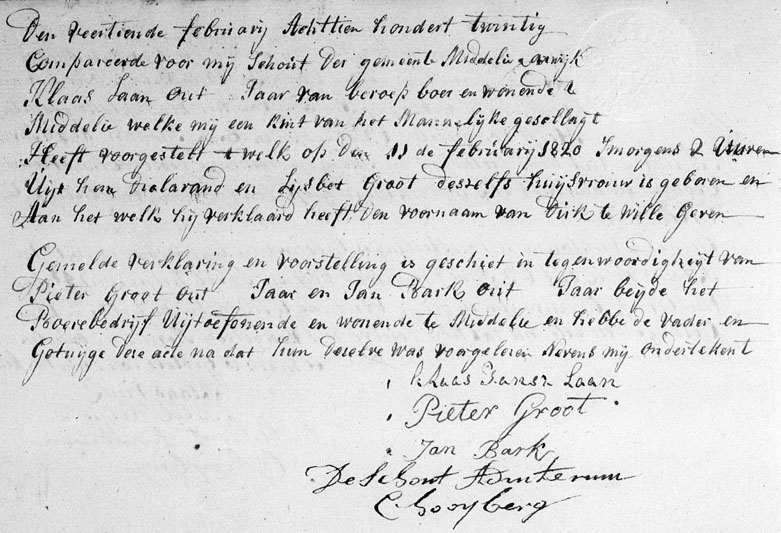 Den veertiende february Achttien hondert twintig
Compareerde voor mij Schout der gemeente Middelie en
Klaas Laan out Jaar van beroep boer en wonende t
Middelie welke mij een kint van het Mannelyke geschlagt
Heeft voorgestelt t welk op Den 11 de february 1820 Smorgens 2 Uuren
Uijt hem en Lijsbet Groot desselfs huijsvrouw is geboren en
Aan het welk hij verklaard heeft Den voornaam van Dirk te wille Geven
Gemelde verklaring en voorstelling is geschiet in tegenwoordigheijt van
Pieter Groot out Jaar en Jan Bark out Jaar beijde het
Boerebedrijf Uijtoefonende en wonende te Middelie en hebbe de vader en
Getuijge Dese acte na dat hun Deselve was voorgelesen Nevens mij ondertekent
Klaas Jansz Laan
Pieter Groot
Jan Bark
De Schout
C Hooyberg